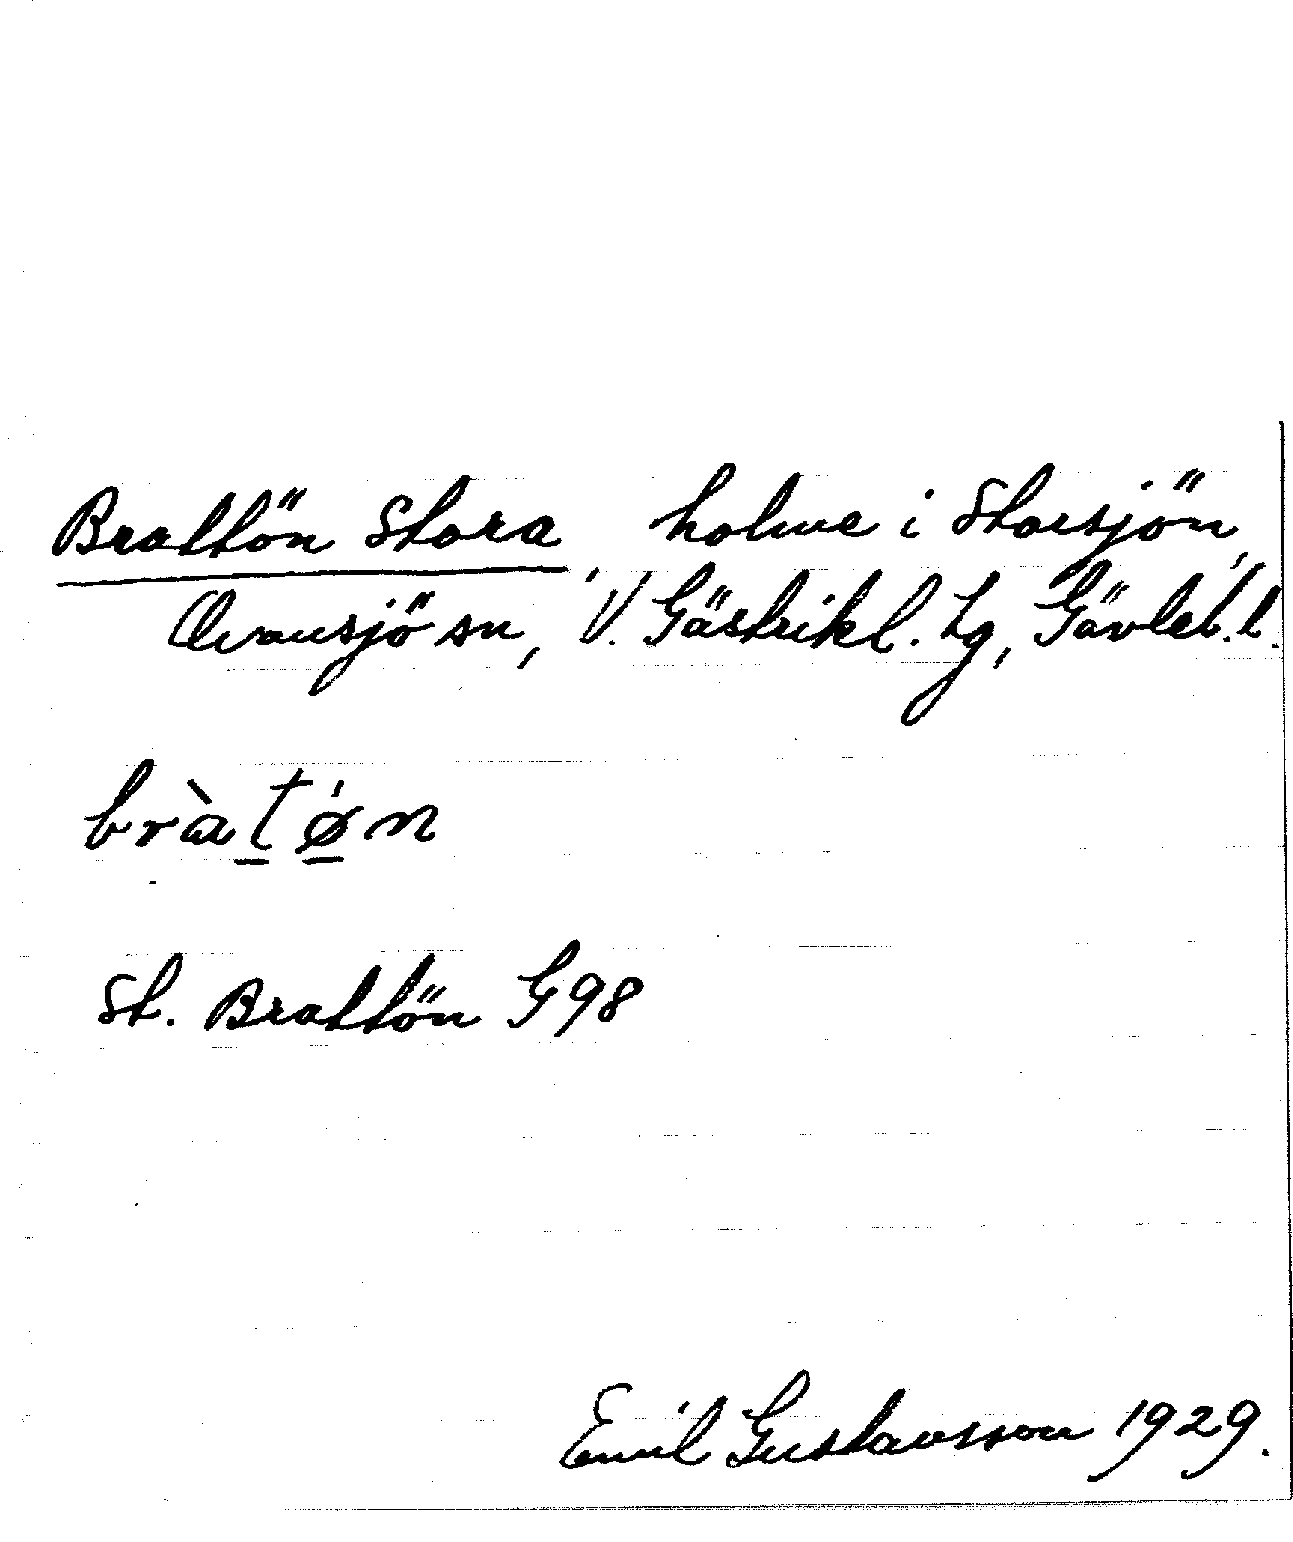 Brattön Stora, holme i Storsjön,
Ovansjö sn, V. Gästrikl. tg, Gävleb. l.
bràt̲ø̲̇n
St. Brattön G98
Emil Gustavsson 1929.